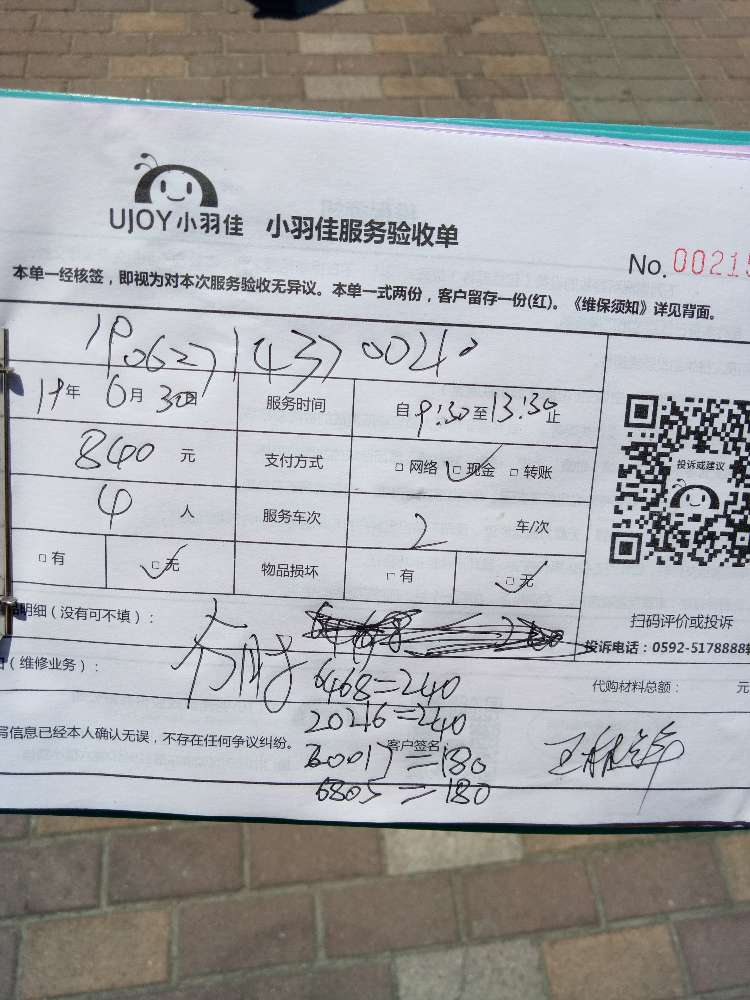 UJOY小羽佳 小羽佳服务验收单
No. 00215
本单一经核签，即视为对本次服务验收无异议。本单一式两份，客户留存一份(红)。《维保须知》详见背面。
19年6月30日 服务时间 自9:30至13:30止
840元 支付方式 □网络 □现金 □转账
4人 服务车次 2 车/次
□有 □无 物品损坏 □有 □无
投诉或建议
扫码评价或投诉
明细（没有可不填）：
投诉电话：0592-5178888转
（维修业务）： 6468=240 代购材料总额： 元
20216=240
写信息已经本人确认无误，不存在任何争议纠纷。 客户签名
60017=180
6805=180